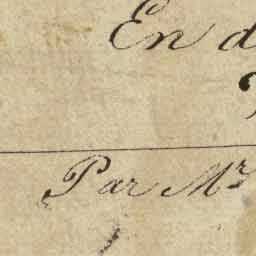 En d
Par Mr